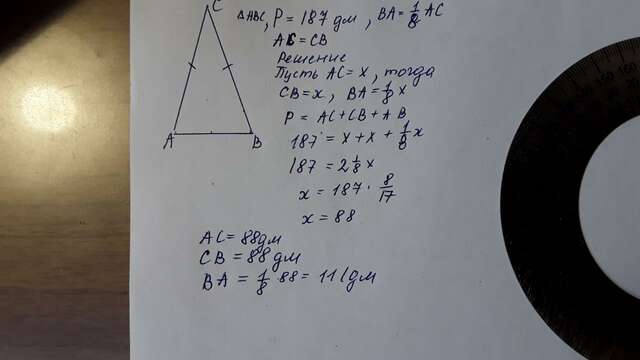 C
△ABC, P = 187 дм, BA = 1/8 AC
AC = CB
Решение
Пусть AC = x, тогда
CB = x, BA = 1/8 x
P = AC + CB + AB
187 = x + x + 1/8 x
187 = 2 1/8 x
x = 187 · 8/17
x = 88
A B
AC = 88 дм
CB = 88 дм
BA = 1/8 88 = 11 (дм